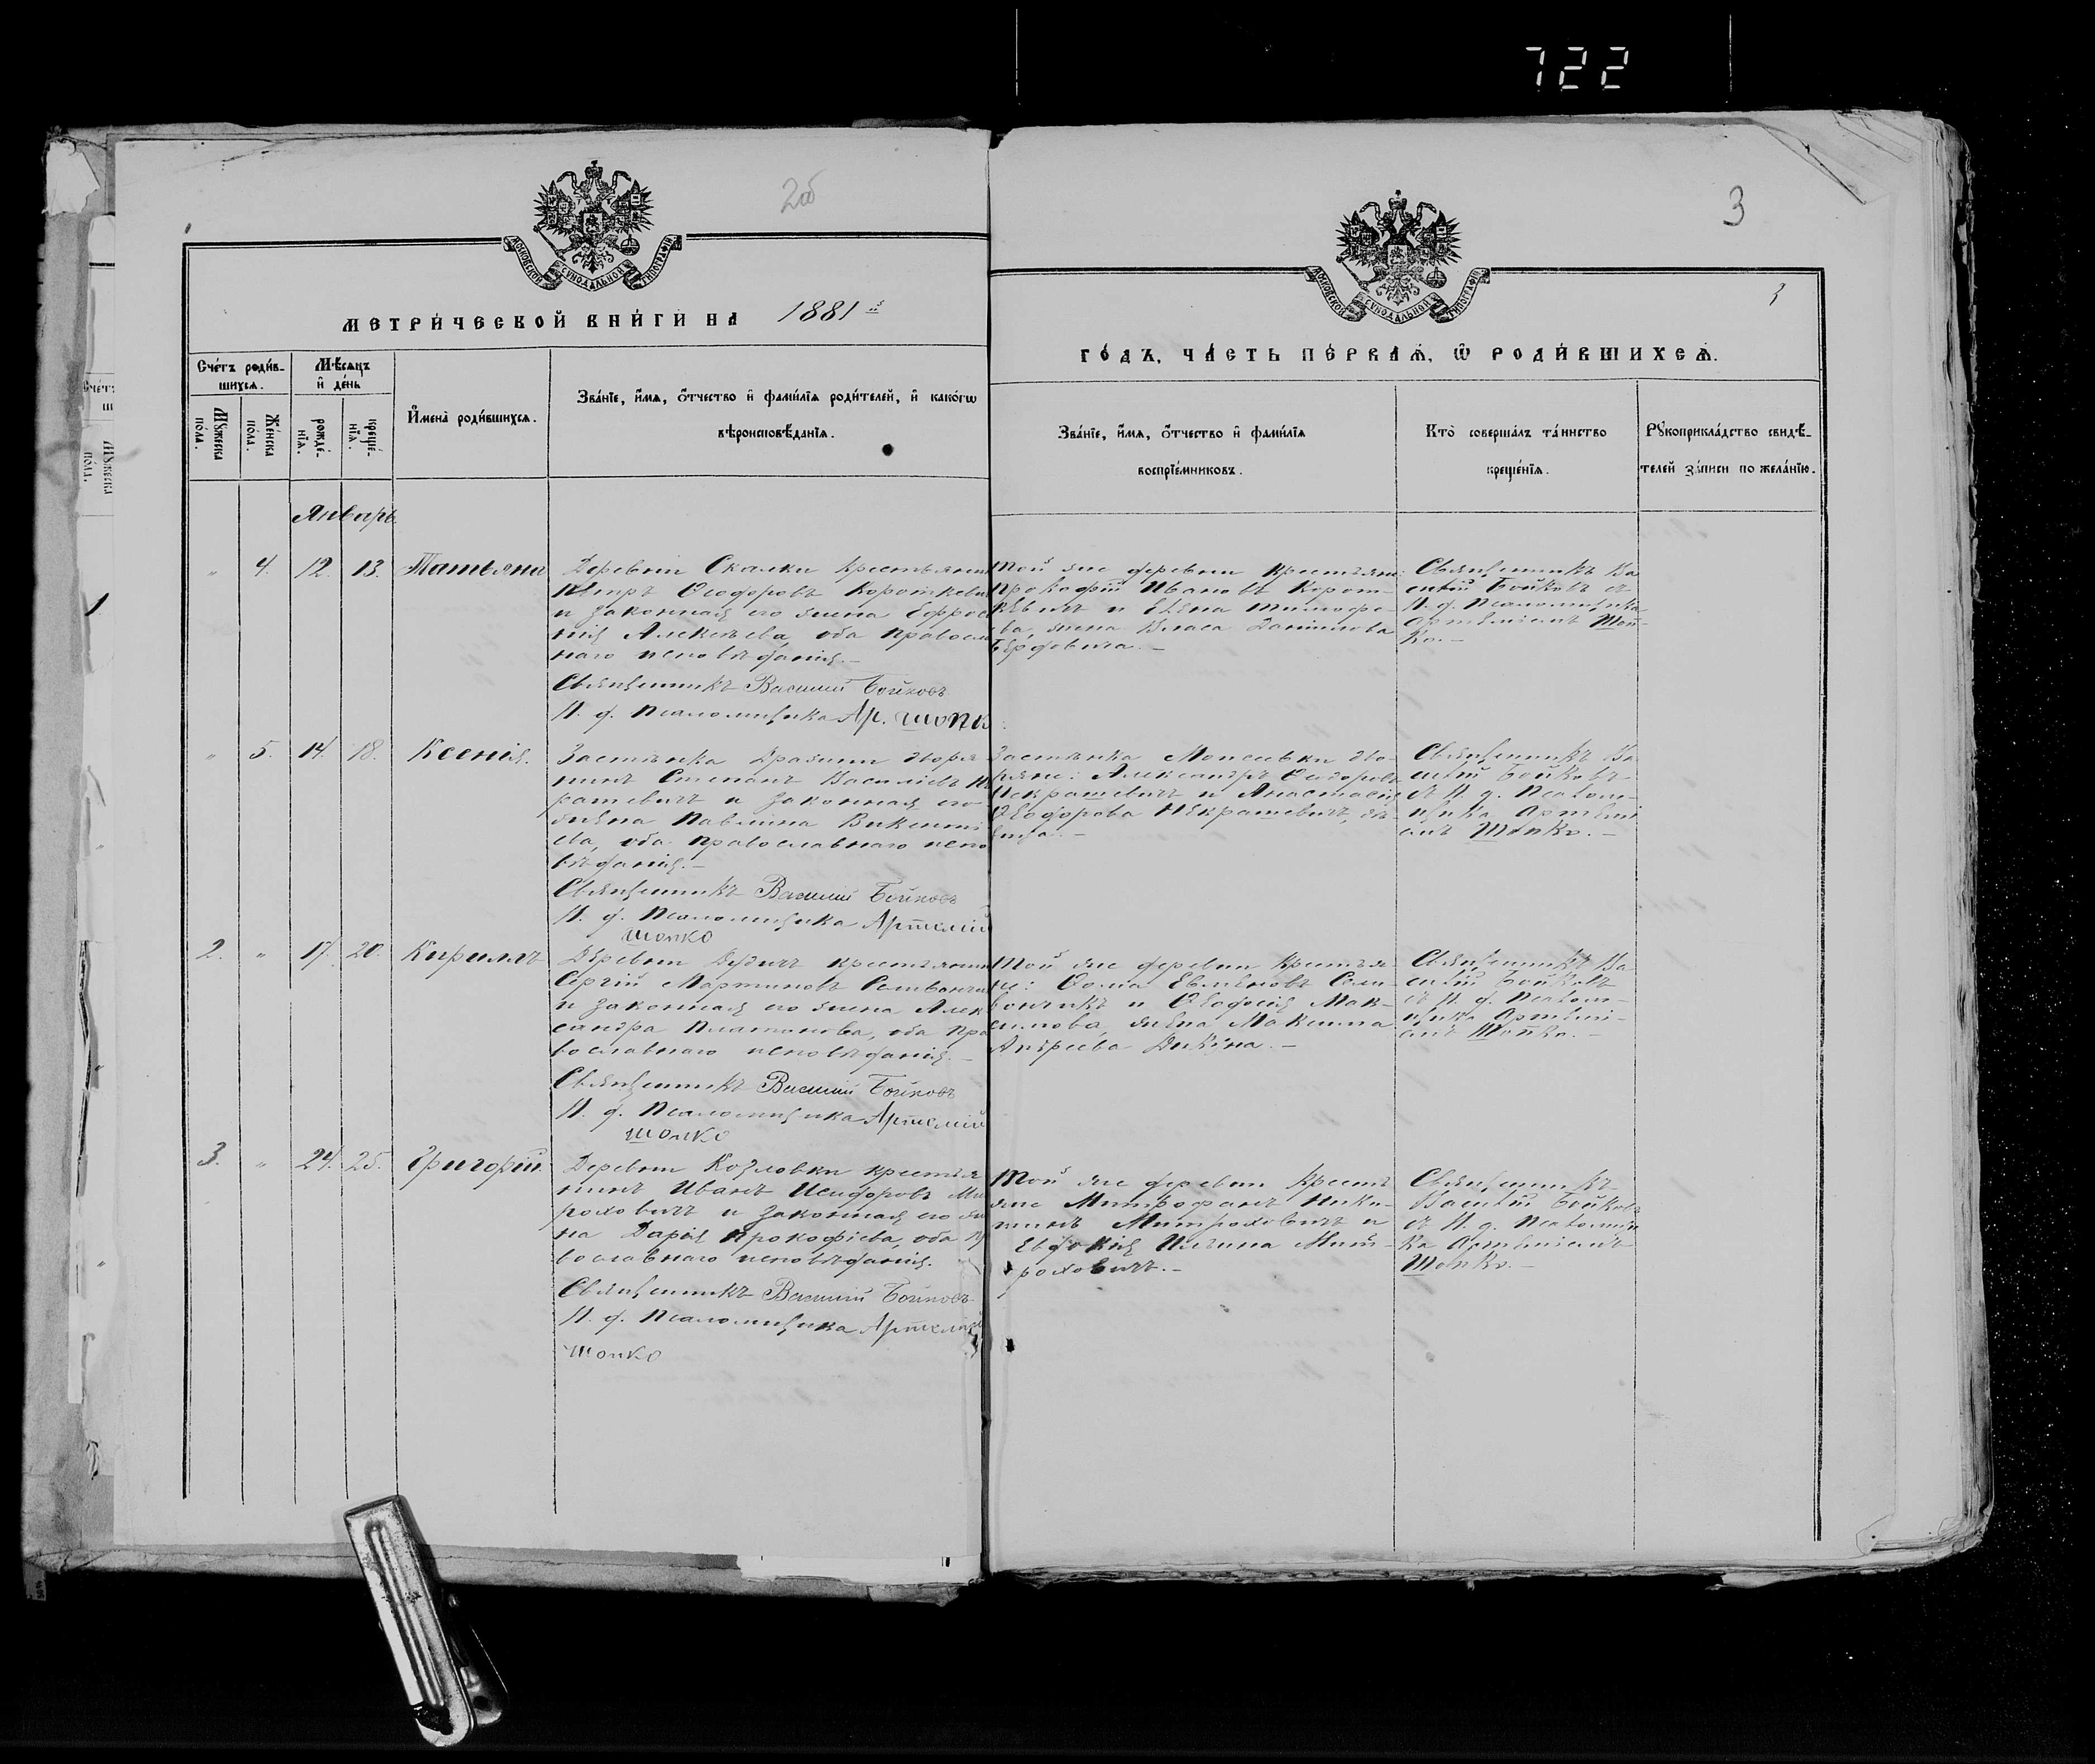 722
2об
3
МОСКОВСКОЙ СУНОДАЛЬНОЙ ТИПОГРАФІИ
МОСКОВСКОЙ СУНОДАЛЬНОЙ ТИПОГРАФІИ
3
МЕТРИ́ЧЕСКОЙ КНИ́ГИ НА 1881й
ГО́ДЪ, ЧА́СТЬ ПЕ́РВАѦ, Ѽ РОДИ́ВШИХСѦ.
Сче́тъ роди́в-
шихсѧ.
Мѣ́сѧцъ
и҆ де́нь
Мꙋ́жеска
по́ла.
Же́нска
по́ла.
рожде́-
нїѧ.
креще́-
нїѧ.
И҆мена̀ роди́вшихсѧ.
Зва́нїе, и҆́мѧ, ѻ҆́тчество и҆ фами́лїѧ роди́телей, и҆ како́гѡ
вѣроисповѣ́данїѧ.
Зва́нїе, и҆́мѧ, ѻ҆́тчество и҆ фами́лїѧ
воспрїе́мниковъ.
Кто̀ соверша́лъ та́инство
креще́нїѧ.
Рꙋкоприкла́дство свидѣ́-
телей за́писи по жела́нїю.
Январь
„ 4. 12. 13. Татьяна
Деревни Скалки крестьянин
Петръ Ѳеодоровъ Короткеви
и законная его жена Ефрос
нія Алексѣева, оба правосла
наго исповѣданія.—
Священникъ Василій Бойковъ
И. д. Псаломщика Ар. Шопк
Той же деревни крестьяне:
Прокофій Ивановъ Корот-
кевичъ и Елена Тимофе-
ва, жена Власа Данилова
Священникъ Ва
силій Бойковъ съ
И. д. Псаломщика
Артеміемъ Шоп-
ко.—
„ 5. 14. 18. Ксенія.
Застѣнка Дворя
нинъ Степанъ Васильевъ Не
рашевичъ и законная его
жена Павлина Викенті
ева, оба православнаго испо
вѣданія.—
Священникъ Василій Бойковъ
И. д. Псаломщика Артемій
Шопко
Застѣнка Моисеевки дво-
ряне: Александръ Ѳеодоровъ
Некрашевичъ и Анастасія
Ѳеодорова Некрашевичъ, дѣ-
вица.—
Священникъ Ва
силій Бойковъ
съ И. д. Псалом-
щика Артемі
емъ Шопко.—
2. „ 17. 20. Кириллъ
Деревни Дудичъ крестьянин
Сергій Мартиновъ Селивончи
и законная его жена Алек
сандра Платонова, оба пра
вославнаго исповѣданія.—
Священникъ Василій Бойковъ
И. д. Псаломщика Артемій
Шопко
Той же деревни крестья
не: Ѳома Евменовъ Сели-
вончикъ и Ѳеодосія Мак-
симова, жена Максима
Андреева Дикуна.—
Священникъ Ва
силій Бойковъ
съ И. д. Псалом-
щика Артемі-
емъ Шопко.—
3. „ 24. 25. Григорій.
Деревни Козловки крестья
нинъ Иванъ Исидоровъ Ми
роховичъ и законная его же
на Дарія Прокофіева, оба пр
вославнаго исповѣданія.
Священникъ Василій Бойковъ
И. д. Псаломщика Артемій
Шопко
Той же деревни крестья
не Митрофанъ Ники-
тинъ Митроховичъ и
Евдокія Ильина Мит-
роховичъ.—
Священникъ
Василій Бойковъ
съ И. д. Псаломщи
ка Артеміемъ
Шопко.—